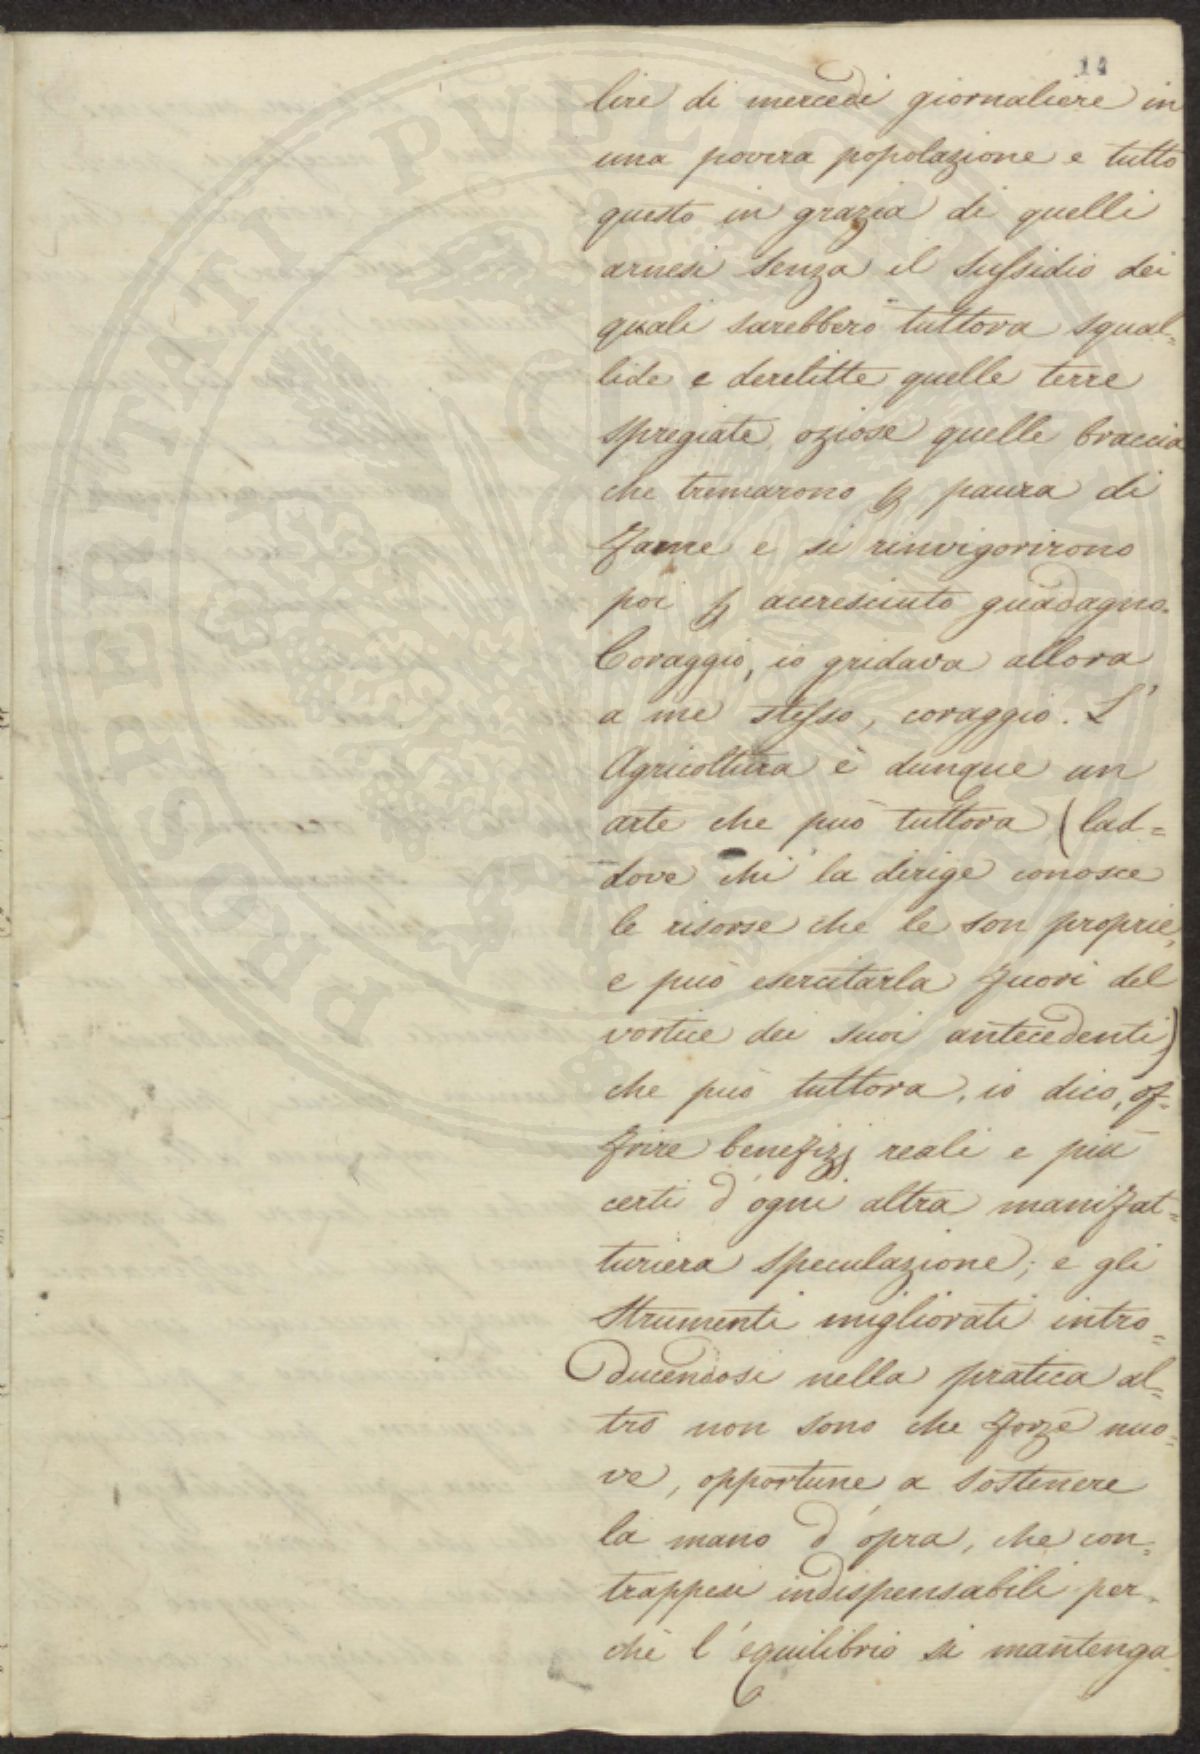 14
lire di mercedi giornaliere in
una povera popolazione e tutto
questo in grazia di quelli
arnesi senza il sussidio dei
quali sarebbero tuttora squal=
lide e derelitte quelle terre
spregiate, oziose quelle braccia
che tremarono p paura di
fame e si rinvigorirono
poi p accresciuto guadagno.
Coraggio, io gridava allora
a me stesso, coraggio. L'
Agricoltura è dunque un
arte che può tuttora (lad=
dove chi la dirige conosce
le risorse che le son proprie,
e può esercitarla fuori del
vortice dei suoi antecedenti)
che può tuttora, io dico, of=
frire benefizj reali e più
certi d'ogni altra manifat=
turiera speculazione; e gli
strumenti migliorati intro=
ducendosi nella pratica al=
tro non sono che forze nuo=
ve, opportune a sostenere
la mano d'opra, che con=
trappesi indispensabili per=
chè l'equilibrio si mantenga
PROSPERITATI PVBLICAE